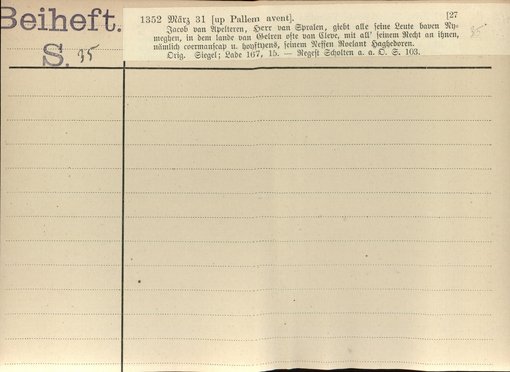 Beiheft.
S. 95
1352 März 31 [up Pallem avent]. [27
Jacob van Apelteren, Herr van Spralen, giebt alle seine Leute baven Ny-
meghen, in dem lande van Gelren ofte van Cleve, mit all' seinem Recht an ihnen,
nämlich coermanscap u. hoyftyens, seinem Neffen Roelant Haghedoren.
Orig. Siegel; Lade 167, 15. — Regest Scholten a. a. O. S. 103.
95